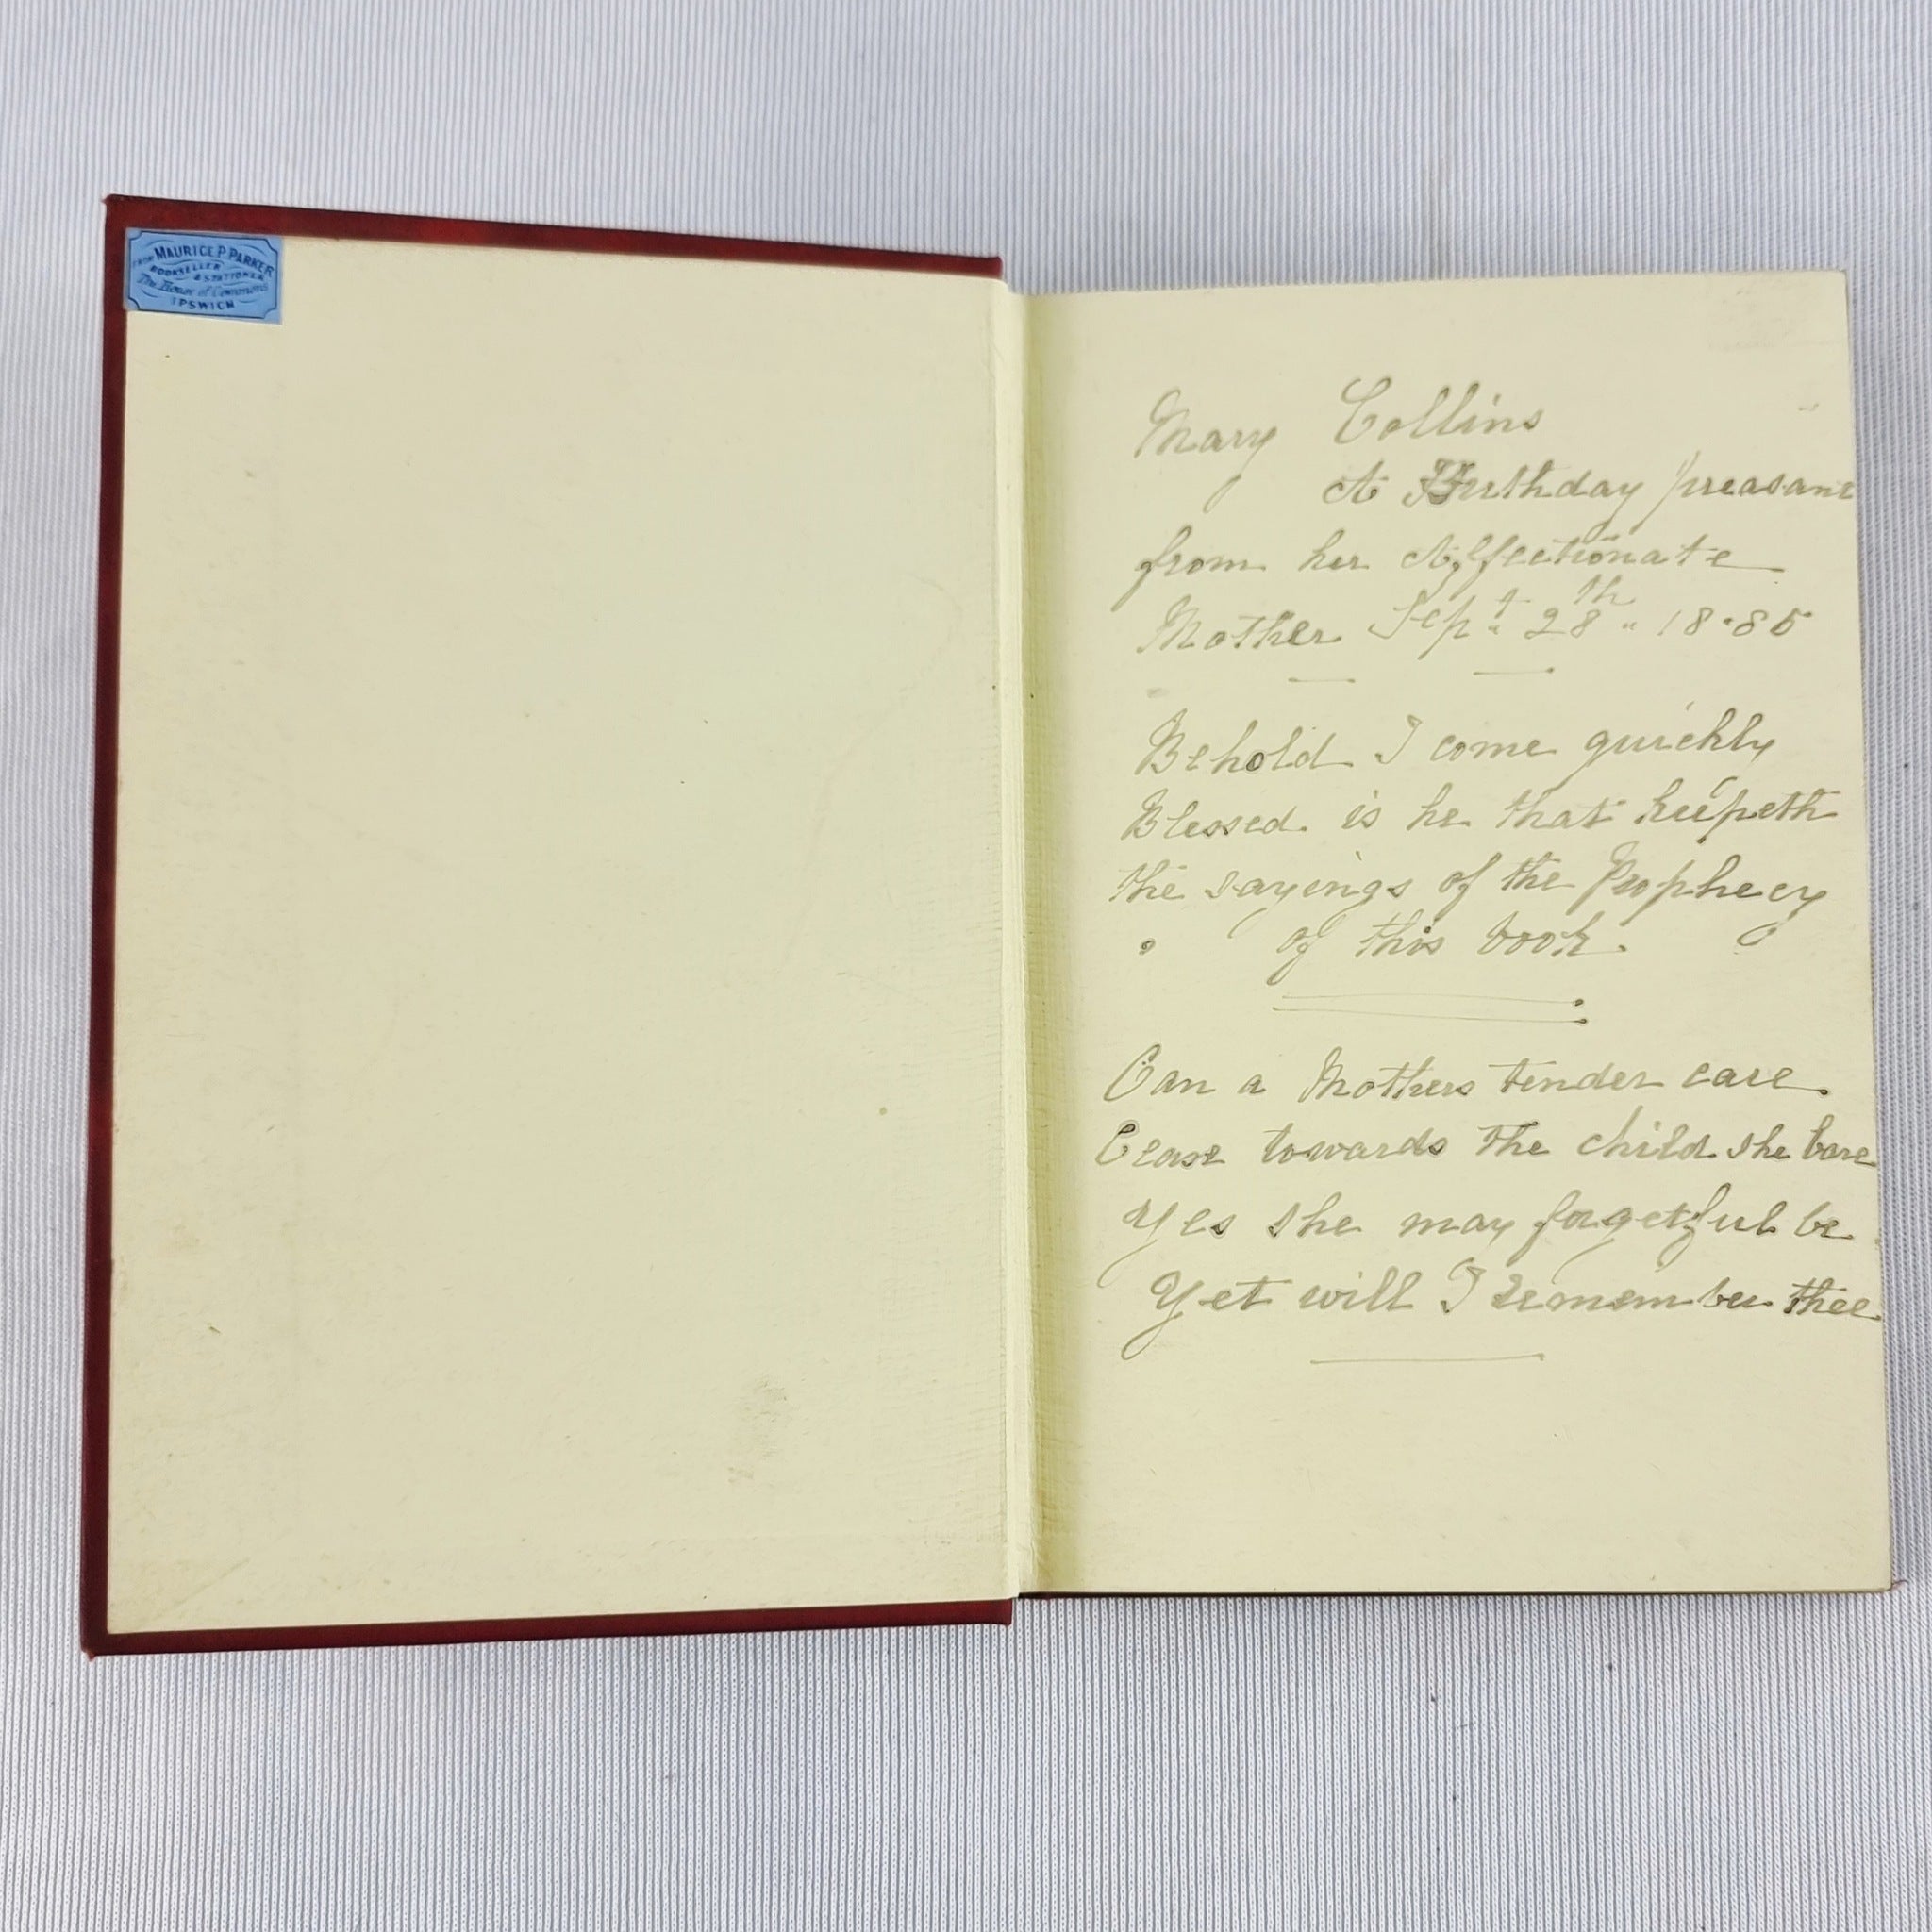 FROM MAURICE P. PARKER
BOOKSELLER
& STATIONER
The House of Commons
IPSWICH
Mary Collins
A Birthday preasant
from her Affectionate
Mother Sept 28th 18.85
Behold I come quickly
Blessed is he that keepeth
the sayings of the Prophecy
of this book.
Can a Mothers tender care
Cease towards the child she bare
Yes she may forgetful be
Yet will I remember thee